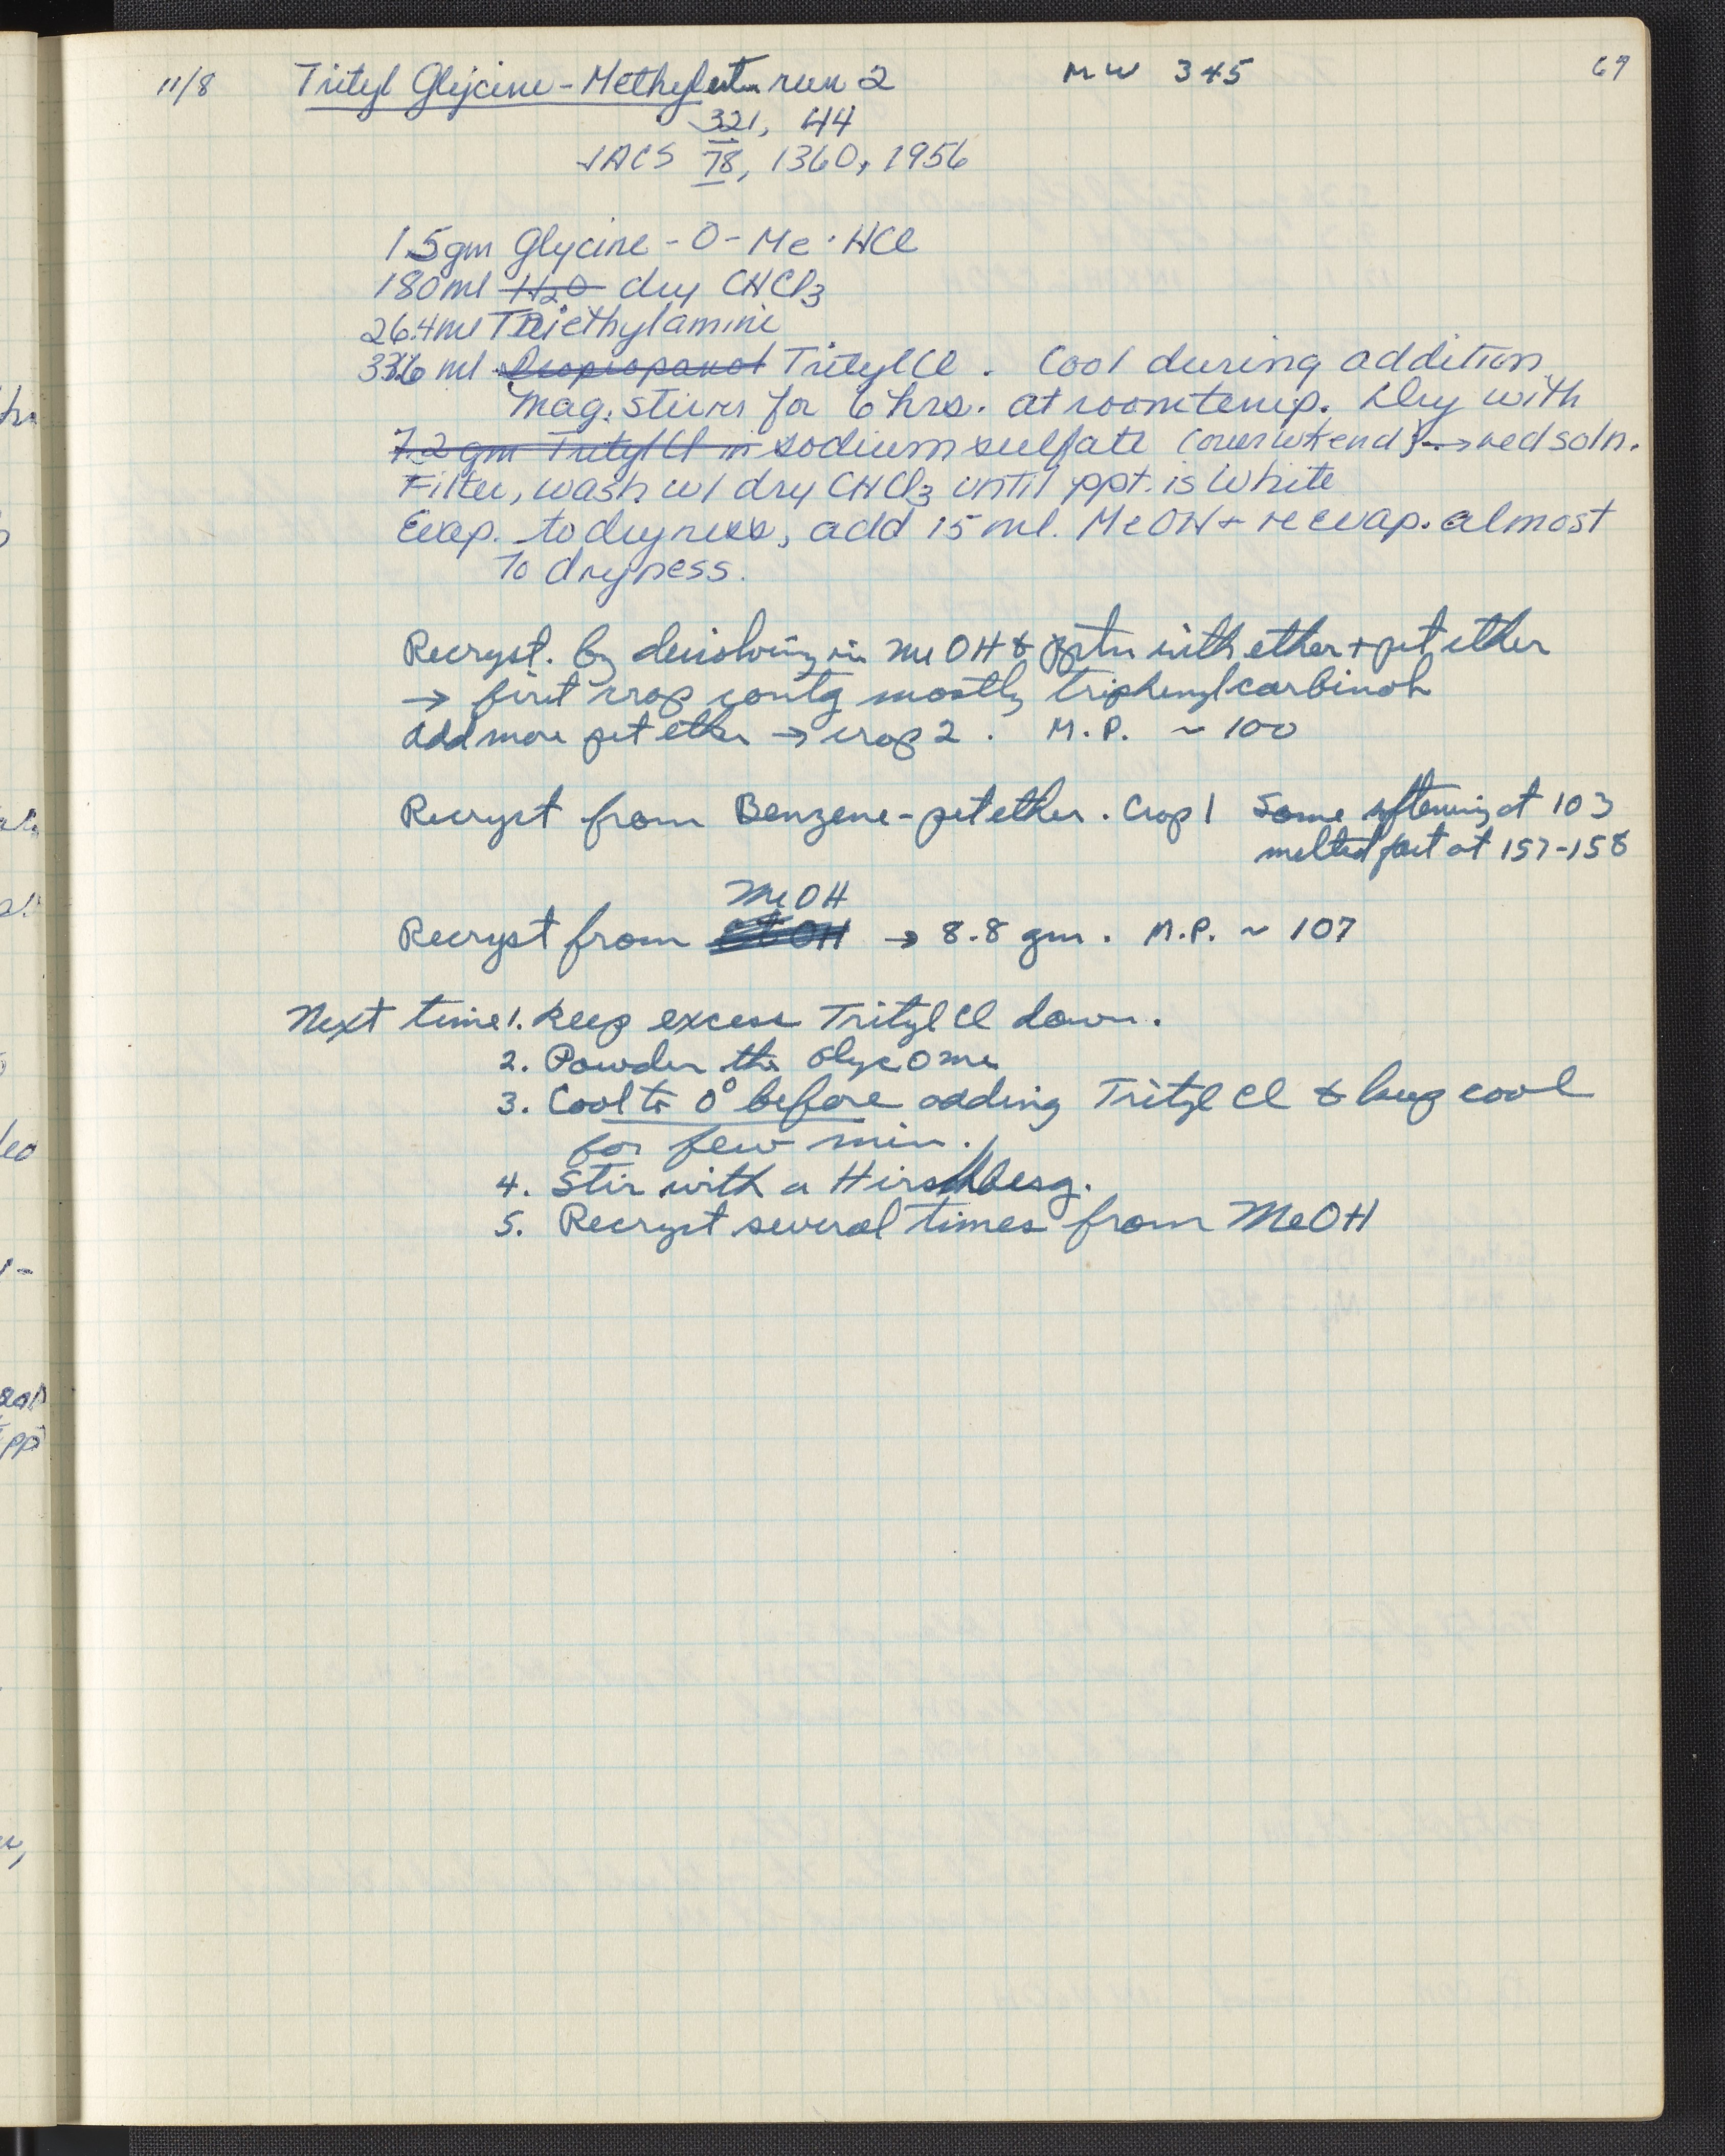 11/8 Trityl Glycine-Methylester run 2 MW 345 69
321, 44
JACS 78, 1360, 1956
15 gm Glycine-O-Me·HCl
180 ml H2O dry CHCl3
26.4 ml Triethylamine
ml Isopropanol TritylCl. Cool during addition
Mag. stirrer for 6 hrs. at room temp. Dry with
7.2 gm TritylCl in sodium sulfate (over wkend) → red soln.
Filter, wash w/ dry CHCl3 until ppt. is white
Evap. to dryness, add 15 ml. MeOH + reevap. almost
to dryness.
Recryst. by dissolving in MeOH & pptn with ether + pet ether
→ first crop contg mostly triphenylcarbinol
Add more pet ether → crop 2. M.P. ~ 100
Recryst from Benzene-pet ether. Crop 1 Some softening at 103
melted at 157-158
MeOH
Recryst from EtOH → 8.8 gm. M.P. ~ 107
Next time 1. Keep excess Trityl Cl down.
2. Powder the GlycOMe
3. Cool to 0° before adding Trityl Cl & keep cool
for few min.
4. Stir with a Hirschberg.
5. Recryst several times from MeOH